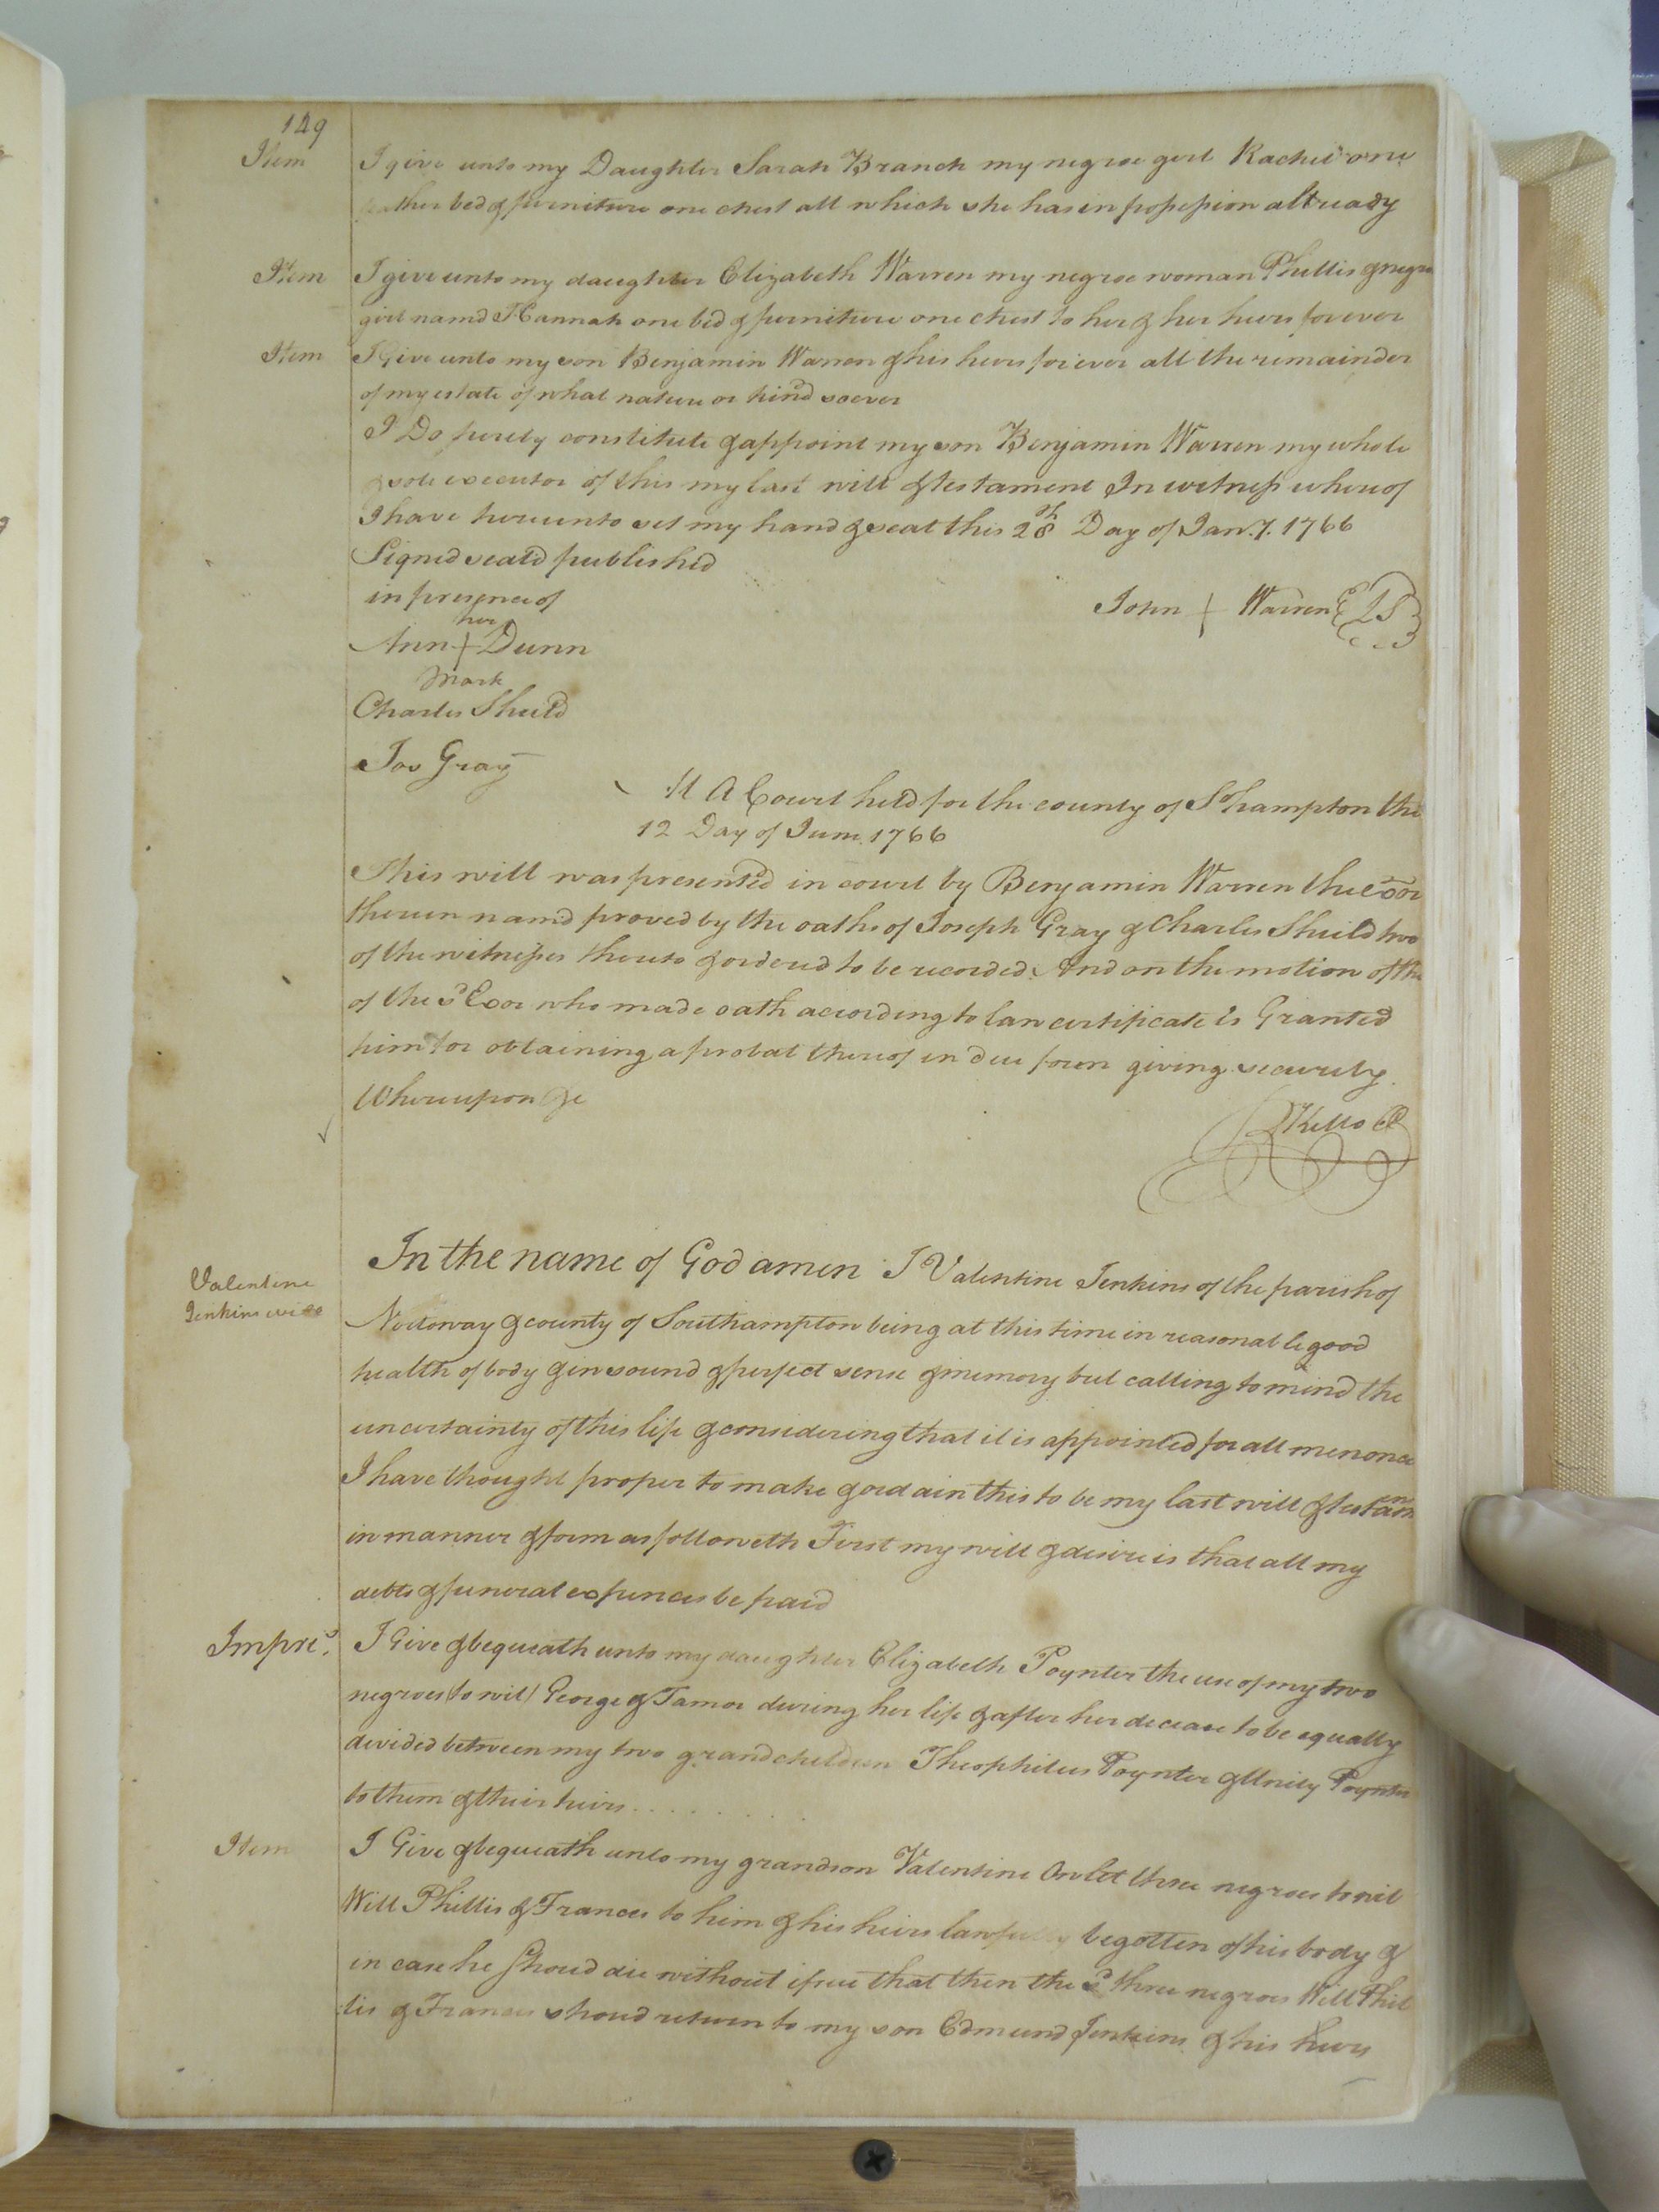 149
Item I give unto my Daughter Sarah Branch my negroe gerl Rachel one
feather bed & furniture one chest all which she has in possession allready
Item I give unto my daughter Elizabeth Warren my negroe woman Phillis & negro
girl namd Hannah one bed & furniture one chest to her & her heirs forever
Item I Give unto my son Benjamin Warren & his heirs forever all the remainder
of my estate of what nature or kind soever
I Do surely constitute & appoint my son Benjamin Warren my whole
& sole executor of this my last will & testament In witness whereof
I have hereunto set my hand & seal this 28th Day of Jany. 1766
Signed seald published
in presence of
John + Warren LS
her
Ann + Dunn
mark
Charles Sheild
Jos Gray
At A Court held for the county of So'hampton the
12 Day of June 1766
This will was presented in court by Benjamin Warren the exor
therein namd proved by the oaths of Joseph Gray & Charles Sheild two
of the witnesses thereto & ordered to be recorded. And on the motion of the
of the sd Exor who made oath according to law certificate is Granted
him for obtaining a probat thereof in due form giving security
Whereupon &c
R Kello CC
Valentine
Jenkins will
In the name of God amen I Valentine Jenkins of the parish of
Nottoway & county of Southampton being at this time in reasonable good
health of body & in sound & perfect sense & memory but calling to mind the
uncertainty of this life & considering that it is appointed for all men once
I have thought proper to make & ordain this to be my last will & testam
in manner & form as followeth First my will & desire is that all my
debts & funeral expences be paid
Impre. I Give & bequeath unto my daughter Elizabeth Poynter the use of my two
negroes (to wit) George & Tamor during her life & after her decease to be equally
divided between my two grandchildren Theophilus Poynter & Unity Poynter
to them & their heirs . . . . . . . .
Item I Give & bequeath unto my grandson Valentine three negroes to wit
Will Phillis & Frances to him & his heirs lawfully begotten of his body &
in case he shoud die without issue that then the sd three negroes Will Phil
lis & Frances shoud return to my son Edmund Jenkins & his heirs